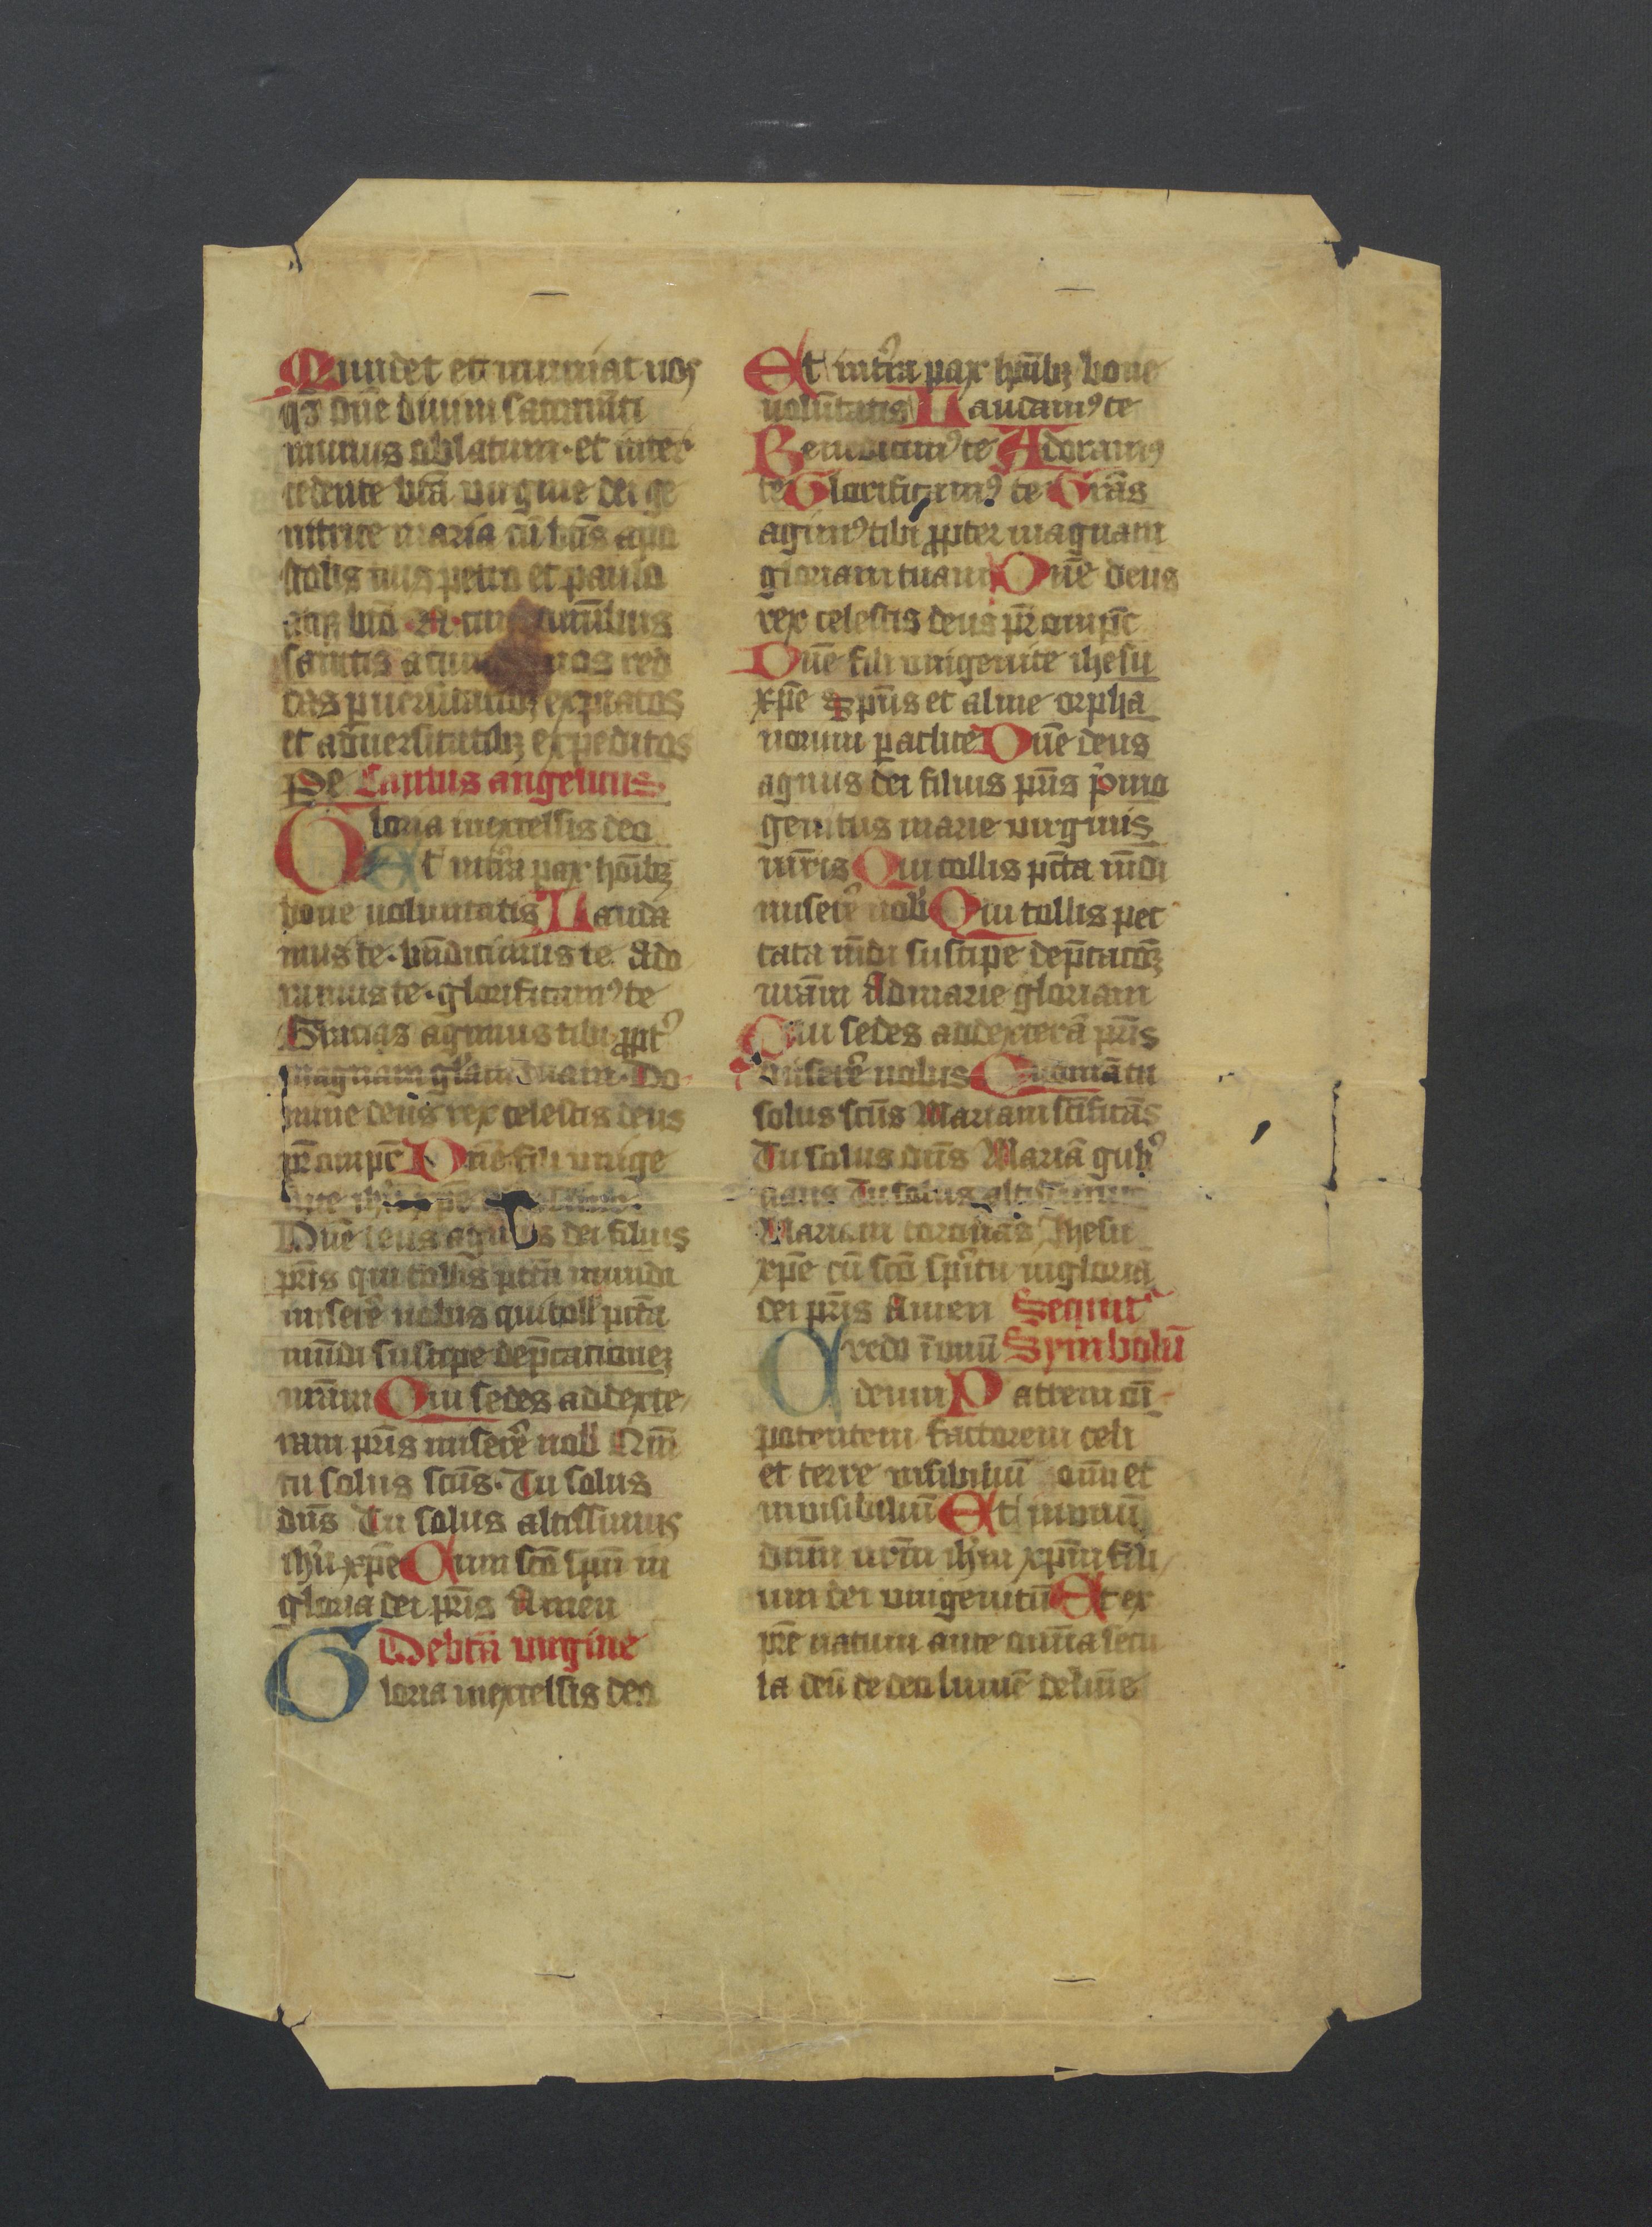 Mundet et muniat nos
qs dñe diuini sacramti
munus oblatum · et inter
cedente bta virgine dei ge
nitrice maria cū btis apo
stolis tuis petro et paulo
atqʒ bto · N · cum omnibus
sanctis a cunctis nos red
das puersitatibʒ expiatos
et aduersitatibʒ expeditos
Per Cantus angelicus
Gloria inexcelsis deo
Et intr̄a pax hoībʒ
bone voluntatis Lauda
mus te · bn̄dicimus te Ado
ramus te · glorificamꝰ te
Gracias agimus tibi ꝓpt᾽
magnam glam tuam · Do-
mine deus rex celestis deus
pr̄ ompc̄ Dn̄e fili unige
nite ihu xpe
Dn̄e deus agnus dei filius
pr̄is qui tollis pctā mundi
miserẽ nobis qui toll pctā
mūdi suscipe dep̄cationeʒ
nr̄am Qui sedes ad dexte
ram pr̄is miserẽ nob Qm̄
tu solus sc̄us · Tu solus
dn̄s Tu solus altissimus
ihu xp̄e Cum sc̄o spū in
gloria dei pr̄is Amen
De bt̄a virgine
Gloria inexcelsis deo
Et intr̄a pax hoībʒ bone
volūtatis Laudamꝰ te
Benedicimꝰ te Adoramꝰ
te Glorificamꝰ te Grãs
agimꝰ tibi ꝓpter magnam
gloriam tuam Dn̄e deus
rex celestis deus pr̄ ompc̄
Dn̄e fili unigenite ihesu
xp̄e spūs et alme orpha
norum paclite Dn̄e deus
agnus dei filius pr̄is pimo
genitus marie virginis
mr̄is Qui tollis pctā mūdi
miserẽ nob Qui tollis pec
cata mūdi suscipe dep̄cacōeʒ
nr̄am Ad marie gloriam
Qui sedes addexterã pr̄is
miserẽ nobis Quoniã tu
solus sc̄us Mariam sc̄ificãs
Tu solus dn̄s Mariã gub᾽
nans Tu solus altissimus
Mariam coronãs Ihesu
xp̄e cū sc̄o spiritu in gloria
dei pr̄is Amen Sequit᾽
Credo ī vnū Symbolū
deum Patrem om̄
potentem factorem celi
et terre visibiliū om̄ et
invisibiliū Et in vnū
dn̄m nr̄m ihm xpm fili
um dei unigenitū Et ex
pr̄e natum ante om̄ia secu
la deū de deo lumẽ de lumĩe